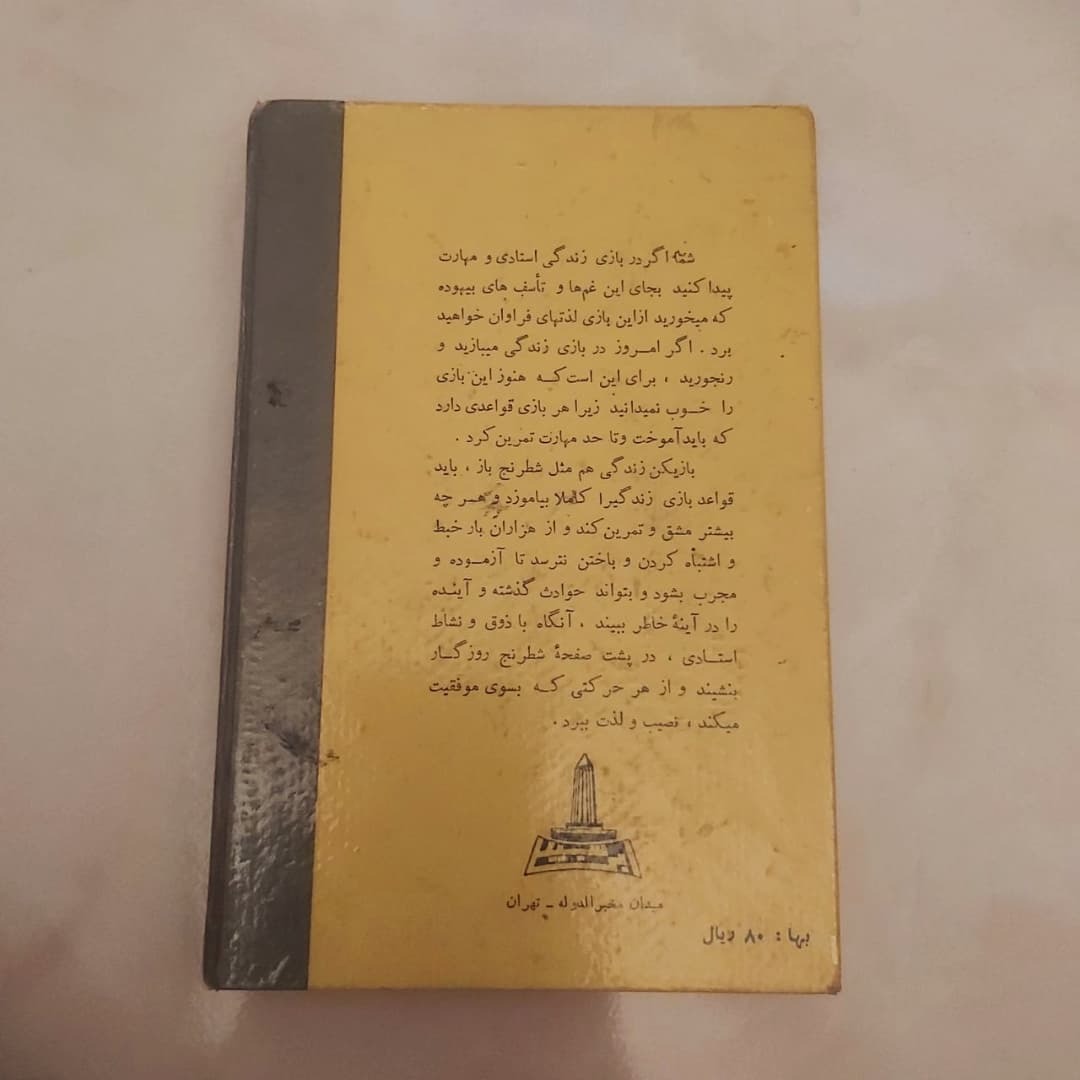 شما اگر در بازی زندگی استادی و مهارت
پیدا کنید بجای این غم‌ها و تأسف های بیهوده
که میخورید ازاین بازی لذتهای فراوان خواهید
برد . اگر امـروز در بازی زندگی میبازید و
رنجورید ، برای این است کـه هنوز این بازی
را خـوب نمیدانید زیرا هر بازی قواعدی دارد
که باید آموخت وتا حد مهارت تمرین کرد .
بازیکن زندگی هم مثل شطرنج باز ، باید
قواعد بازی زندگیرا کاملا بیاموزد و هـر چه
بیشتر مشق و تمرین کند و از هزاران بار خبط
و اشتباه کردن و باختن نترسد تا آزمـوده و
مجرب بشود و بتواند حوادث گذشته و آینـده
را در آینۀ خاطر ببیند ، آنگاه با ذوق و نشاط
استـادی ، در پشت صفحۀ شطرنج روزگـار
بنشیند و از هر حرکتی کـه بسوی موفقیت
میکند ، نصیب و لذت ببرد .
میدان مخبرالدوله ـ تهران
بها : ۸۰ ریال